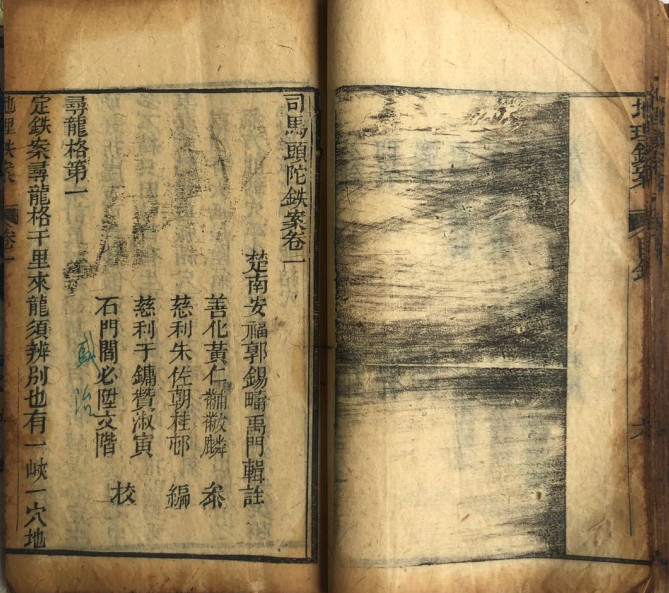 地理鉄案
目錄
司馬頭陀鉄案卷一
楚南安福郭錫疇禹門輯註
善化黃仁黼黻麟 叅
慈利朱佐朝桂邨 編
慈利于鏞贊淑寅
石門閻必陞文階 校
尋龍格第一
定鉄案尋龍格千里來龍須辨別也有一峽一穴地
地理鉄案 卷一